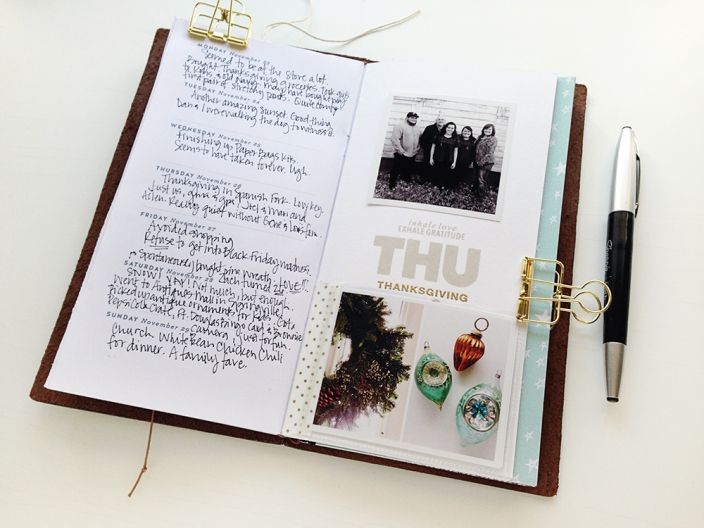 MONDAY November 23
Seemed to be at the store a lot
Bought Thanksgiving groceries. Took gifts
to Kohls, and may have bought my
first pair of stretchy pants. Quite comfy
TUESDAY November 24
Another amazing sunset. Good thing
Dan & I were walking the dog to notice it.
WEDNESDAY November 25
Finishing up Paper Bags kits.
Seems to have taken forever. Ugh.
THURSDAY November 26
Thanksgiving in Spanish Fork. Low key.
Just us, gma & gpa, and
Allen. Really quiet without Gene & fam.
FRIDAY November 27
Avoided shopping
Refuse to get into Black Friday madness.
Spontaneously bought pine wreath. LOVE!!!
SATURDAY November 28 Zach turned 21
SNOW! YAY! Not much, but enough.
Went to Antiques mall in Springville
Picked up antique ornaments for Kids. Gots
Pepsi Cola Crate, Ft. Douglas Bingo card & Brownie
SUNDAY November 29 Camera, just for fun.
Church. White Bean Chicken Chili
for dinner. A family fave.
inhale love
EXHALE GRATITUDE
THU
THANKSGIVING